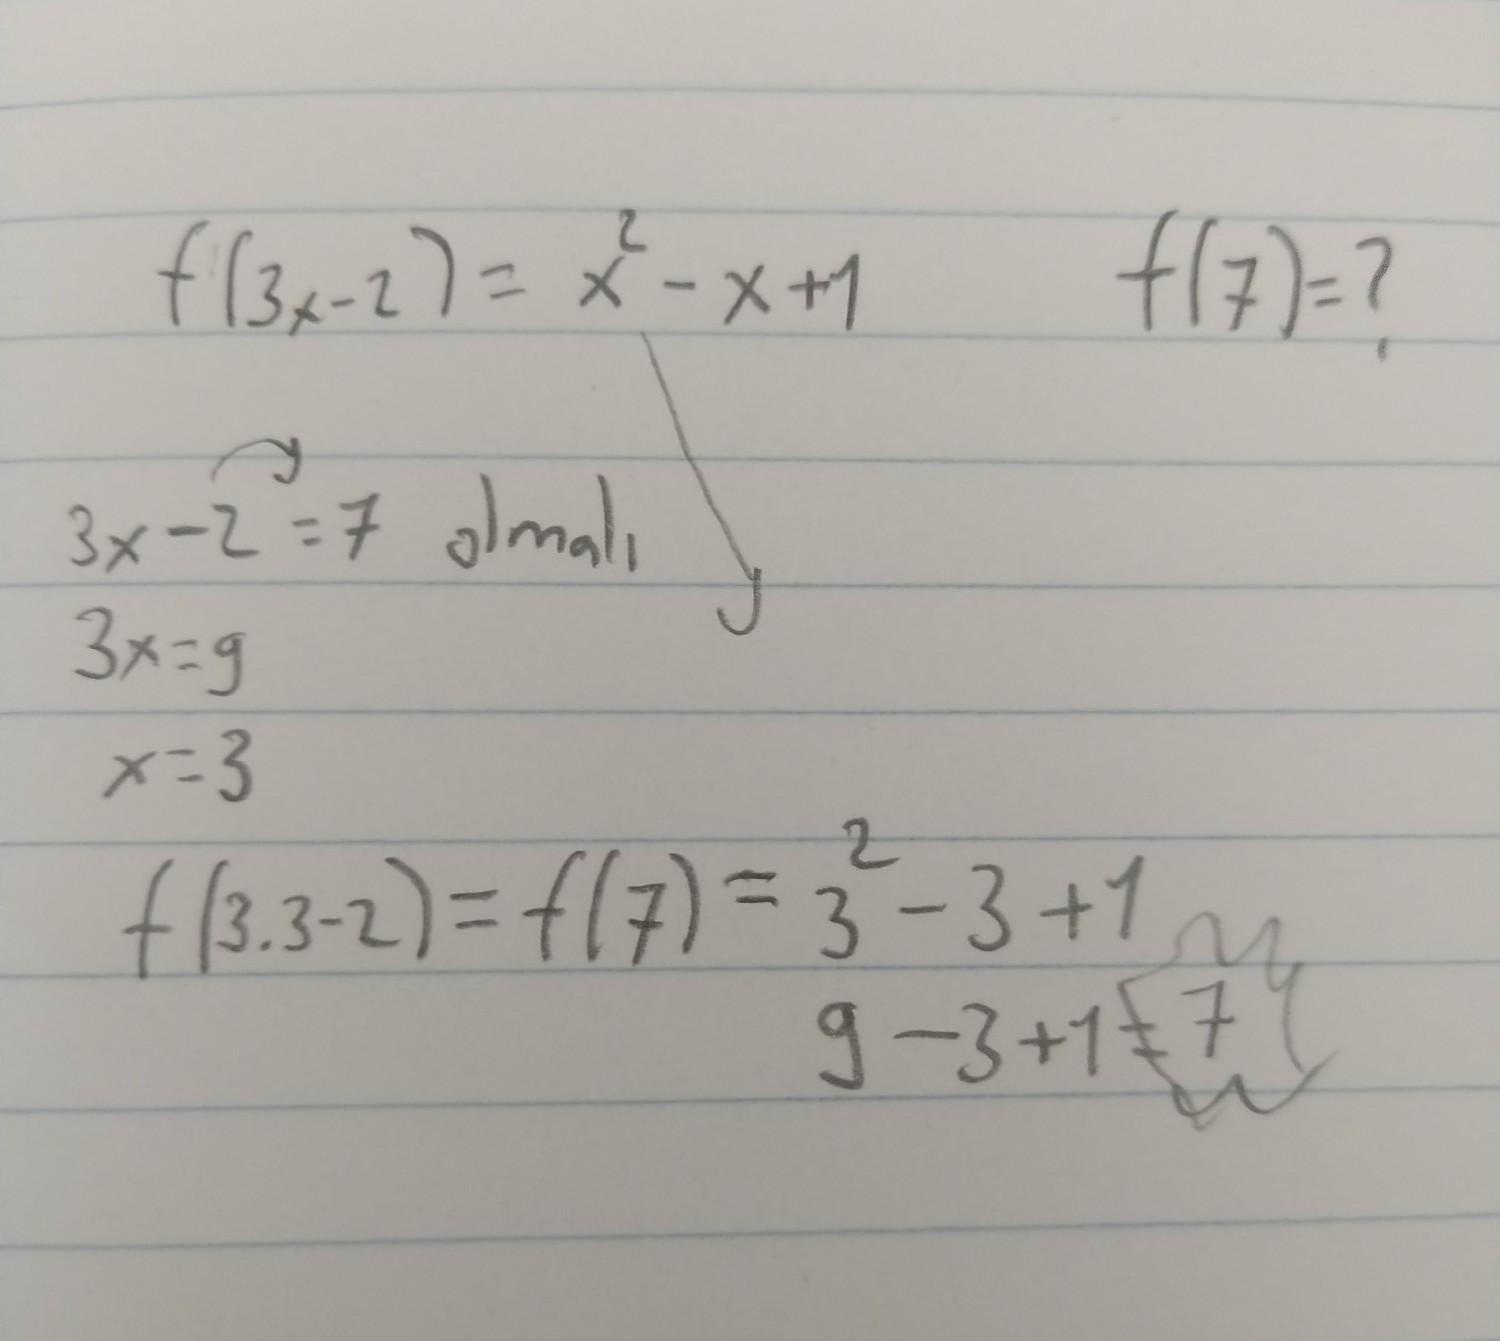 f(3x-2) = x² - x + 1 f(7) = ?
3x - 2 = 7 olmalı
3x = 9
x = 3
f(3.3-2) = f(7) = 3² - 3 + 1
9 - 3 + 1 = 7